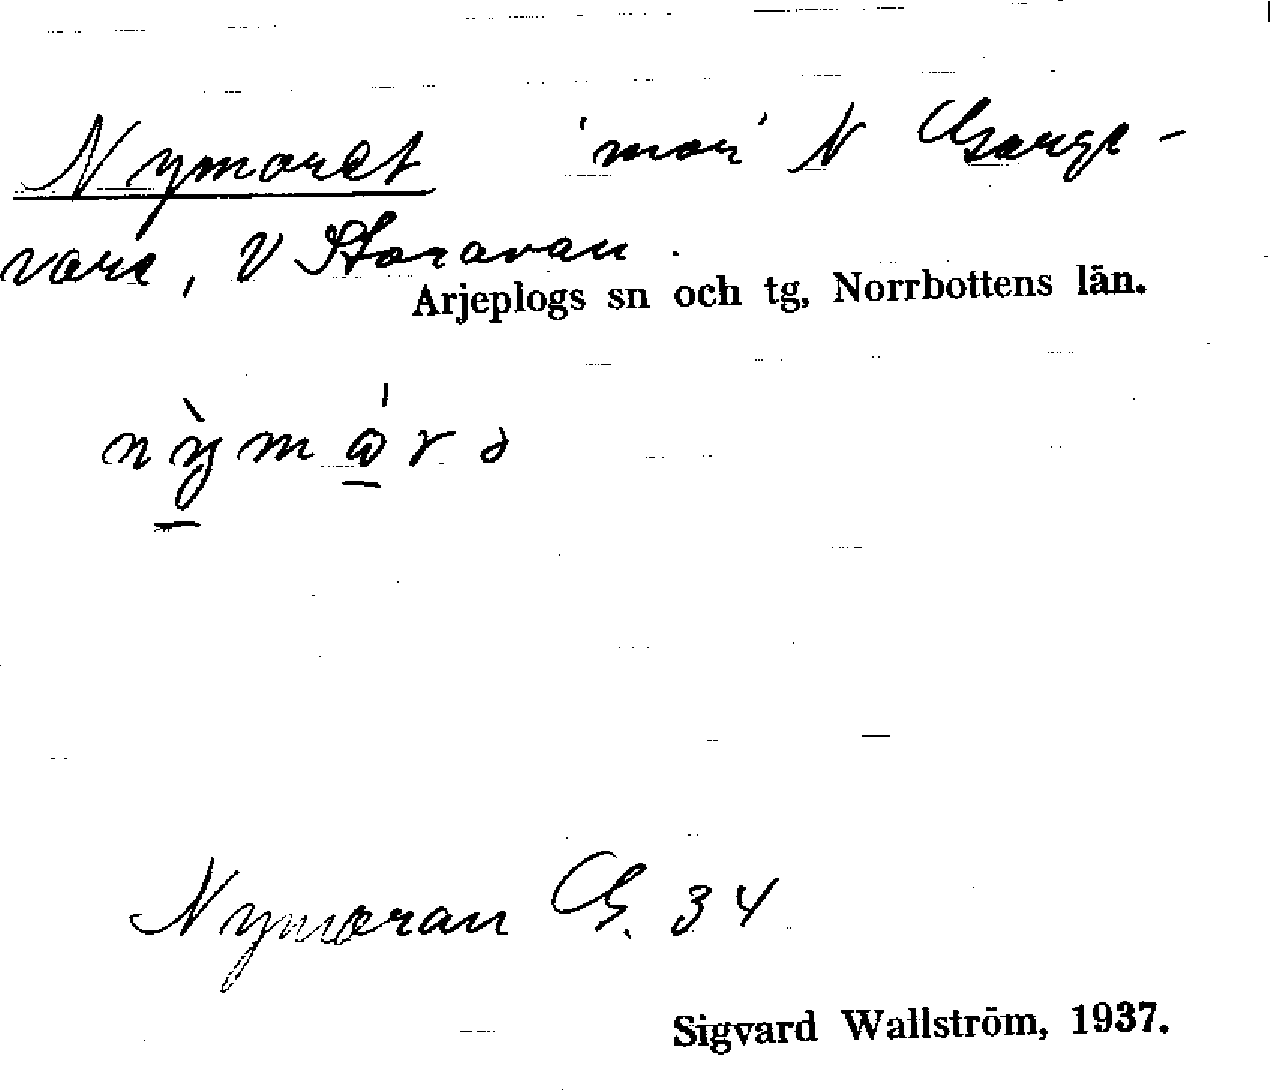 Nymoret 'mon' N Gauge-
vare, V Storavan.
Arjeplogs sn och tg, Norrbottens län.
Nymoran G. 34
Sigvard Wallström, 1937.